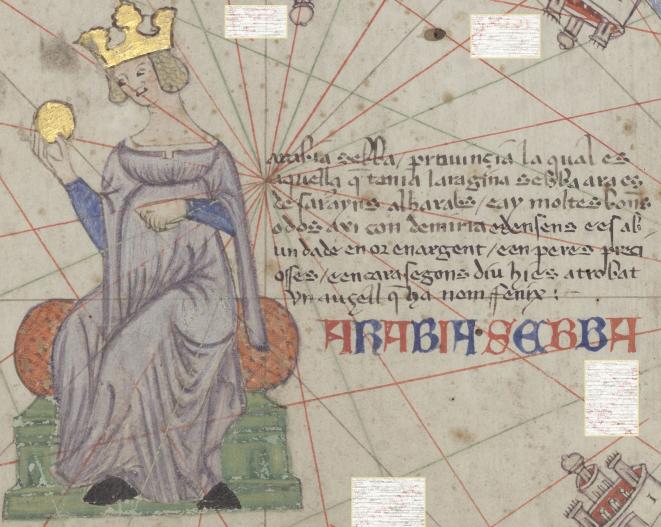 arabia sebba, provinçia la qual es
aquella q̃ tenia la ragina sebba ara es
de sarayns alharabs / e ay moltes bons
odos axi con de miria edensens e es ab
undade en or en argent / e en peres preci
oses / e encara segons diu hi es atrobat
vn auçell q̃ ha nom ffenix :
ARABIA·SEBBA